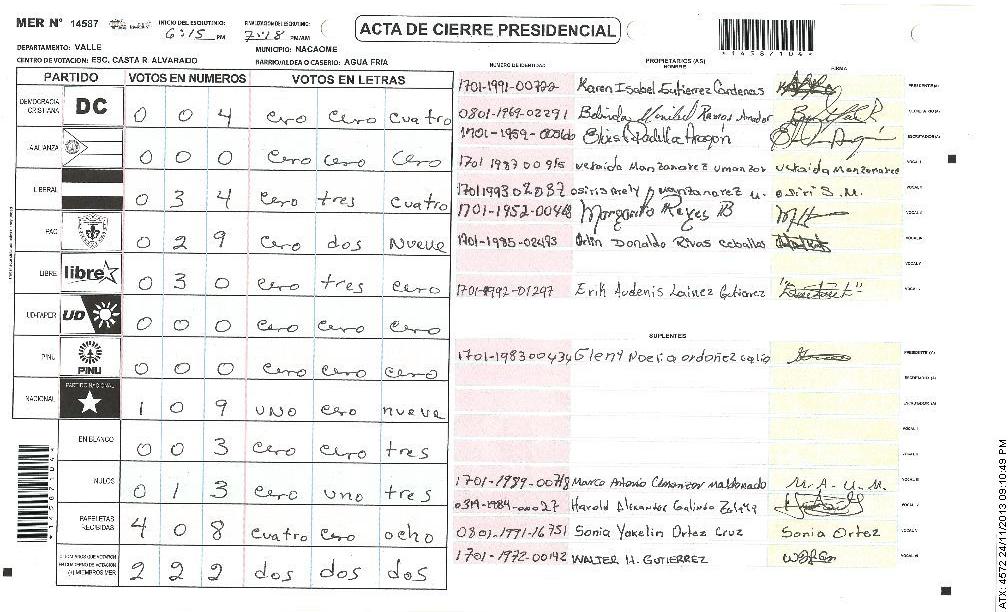 MER N° 14587 INICIO DEL ESCRUTINIO: 6:15 PM FINALIZACION DEL ESCRUTINIO: 7:18 PM/AM
ACTA DE CIERRE PRESIDENCIAL
*14587104*
DEPARTAMENTO: VALLE MUNICIPIO: NACAOME
CENTRO DE VOTACION: ESC. CASTA R. ALVARADO BARRIO/ALDEA O CASERIO: AGUA FRIA
PARTIDO VOTOS EN NUMEROS VOTOS EN LETRAS
DEMOCRACIA CRISTIANA DC 0 0 4 cero cero cuatro
ALIANZA 0 0 0 cero cero cero
LIBERAL 0 3 4 cero tres cuatro
PAC 0 2 9 cero dos Nueve
LIBRE libre 0 3 0 cero tres cero
UD-FAPER UD 0 0 0 cero cero cero
PINU PINU 0 0 0 cero cero cero
NACIONAL PARTIDO NACIONAL 1 0 9 uno cero nueve
EN BLANCO 0 0 3 cero cero tres
NULOS 0 1 3 cero uno tres
PAPELETAS RECIBIDAS 4 0 8 cuatro cero ocho
(+) MIEMBROS MER 2 2 2 dos dos dos
*14587104*
NUMERO DE IDENTIDAD PROPIETARIOS (AS) NOMBRE FIRMA
1701-1991-00722 Karen Isabel Gutierrez Cardenas PRESIDENTE(A)
0801-1969-02291 Belinda Ramos Amador
1701-1959- Elvis Padilla Aragón ESCRUTADOR(A)
1701 1987 00915 Manzanarez umanzor Manzanarez VOCAL
1701 1993 02087 osiris manzanarez u. osiri S. M. VOCAL
1701-1952-00468 Margarito Reyes B VOCAL
1701-1985-02493 Donaldo Rivas Ceballos VOCAL
VOCAL
1701-1992-01297 Erik Audenis Lainez Gutierrez VOCAL
SUPLENTES
1701-1983 00434 Gleny Noelia ordoñez PRESIDENTE (A)
SECRETARIO (A)
ESCRUTADOR (A)
VOCAL I
VOCAL
1701-1989-00718 Marco Antonio Umanzor maldonado M. A. U. M. VOCAL
0319-1984-00027 Harold Alexander Galindo VOCAL
0801-1991-16751 Sonia Yakelin Ortez Cruz Sonia Ortez VOCAL
1701-1972-00142 WALTER H. GUTIERREZ VOCAL
ATX: 4572 24/11/2013 09:10:49 PM